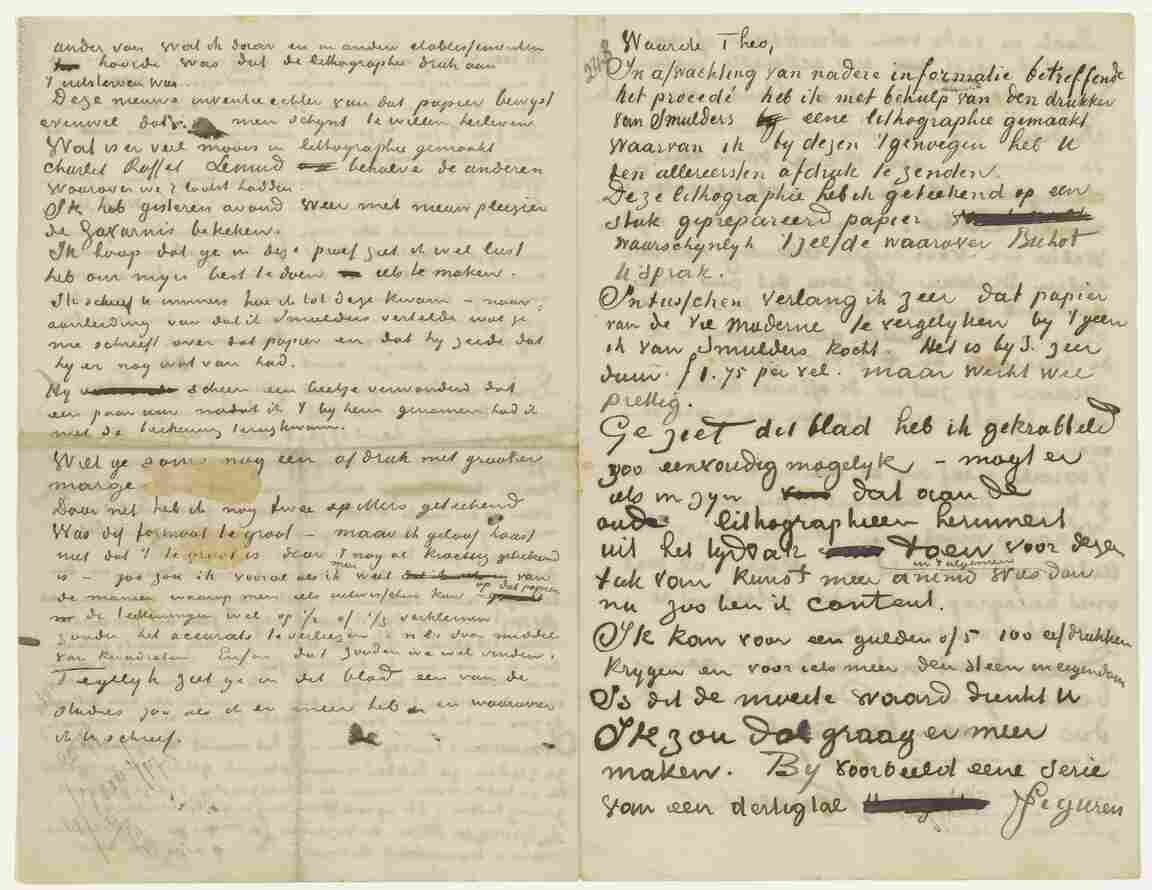 ander van Wat ik daar en in andere etablissementen
hoorde was dat de lithographie druk aan
't uitsterven was.
Deze nieuwe inventie echter van dat papier bewyst
evenwel dat men schynt te willen herleven
Wat is er veel moois in lithographie gemaakt
Charlet Raffet Lemud behalve de anderen
waarover we 't laatst hadden.
Ik heb gisteren avond weer met nieuw pleizier
de Gavarnis bekeken.
Ik hoop dat ge in deze proef ziet ik wel lust
heb om myn best te doen iets te maken.
Ik schreef U immers hoe ik tot deze kwam – naar
aanleiding van dat ik Smulders vertelde wat je
me schreeft over dat papier en dat hy zeide dat
hy er nog wat van had.
Hy scheen een beetje verwonderd dat
een paar uur nadat ik 't by hem genomen had ik
met de teekening terugkwam.
Wilt ge soms nog een afdruk met grooter
marge
Daar net heb ik nog twee spitters geteekend
Was dit formaat te groot – maar ik geloof haast
niet dat 't te groot is daar 't nog al krachtig geteekend
is – zou zou ik vooral als ik meer weet van
de manier waarop men iets uitwisschen kan op dat papier
de teekeningen wel op 1/2 of 1/3 verkleinen
zonder het accurate te verliezen n.l. door middel
van kwadraten Enfin dat zouden we wel vinden.
Tegelyk ziet ge in dit blad een van de
studies zoo als ik er meer heb en waarover
ik U schreef.
de
248
Waarde Theo,
In afwachting van nadere informatie betreffende
het procedé heb ik met behulp van den drukker
van Smulders eene lithographie gemaakt
waarvan ik by dezen 't genoegen heb U
den allereersten afdruk te zenden.
Deze lithographie heb ik geteekend op een
stuk geprepareerd papier
waarschynlyk 't zelfde waarover Buhot
U sprak.
Intusschen verlang ik zeer dat papier
van de vie moderne te vergelyken by 't geen
ik van Smulders kocht. Het is by S. zeer
duur. f 1.75 per vel. maar werkt wel
prettig.
Ge ziet dit blad heb ik gekrabbeld
zoo eenvoudig mogelyk – mogt er
iets in zyn dat aan de
oude lithographieen herinnert
uit het tydvak toen voor dezen
in 't algemeen
tak van kunst meer animo was dan
nu zoo ben ik content.
Ik kan voor een gulden of 5 100 afdrukken
krygen en voor iets meer den steen in eigendom
Is dit de moeite waard dunkt U
Ik zou dol graag er meer
maken. By voorbeeld eene serie
van een dertigtal figuren